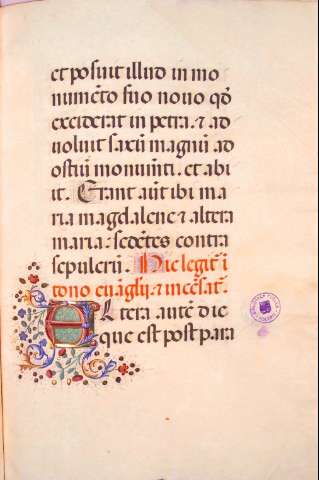 et posuit illud in mo
numēto suo novo qđ
exciderat in petra. ⁊ ad
voluit saxū magnū ad
ostiū monumīti. et abi
it. Erant aūt ibi ma
ria magdalene ⁊ altera
maria: sedētes contra
sepulcrū. Hic legit̄ ī
tono euāglij. ⁊ incēsat̄.
Altera autē die
que est post para